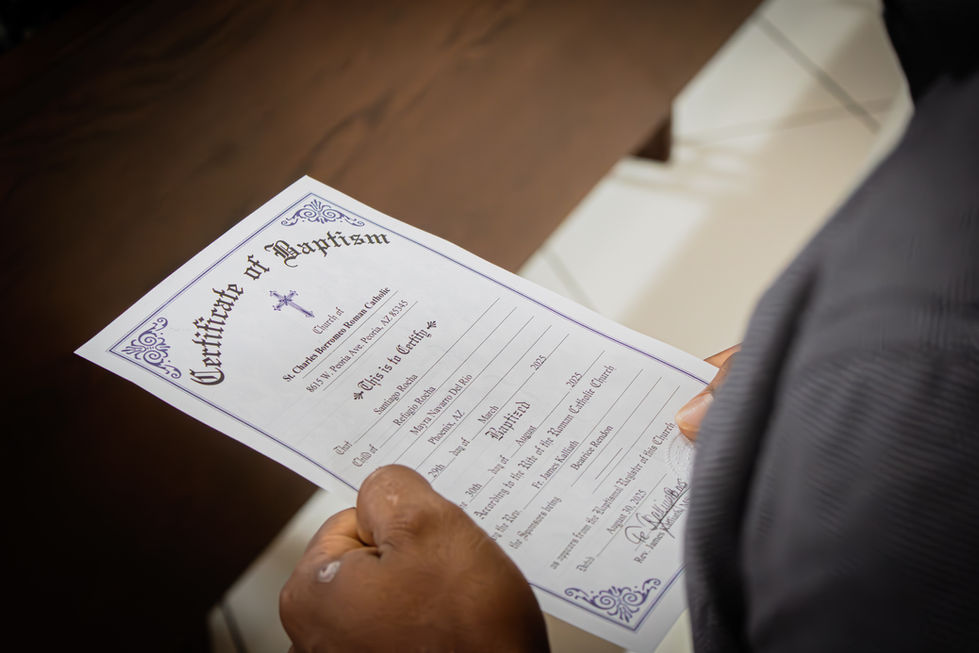 Certificate of Baptism
Church of
St. Charles Borromeo Roman Catholic
8615 W. Peoria Ave. Peoria, AZ 85345
This is to Certify
That Santiago Rocha
Child of Refugio Rocha
Mayra Navarro Del Rio
Phoenix, AZ
29th day of March 2025
Baptized
30th day of August 2025
According to the Rite of the Roman Catholic Church
by the Rev. Fr. James Kallath
the Sponsors being Beatrice Rendon
as appears from the Baptismal Register of this Church
Dated August 30, 2025
Rev. James